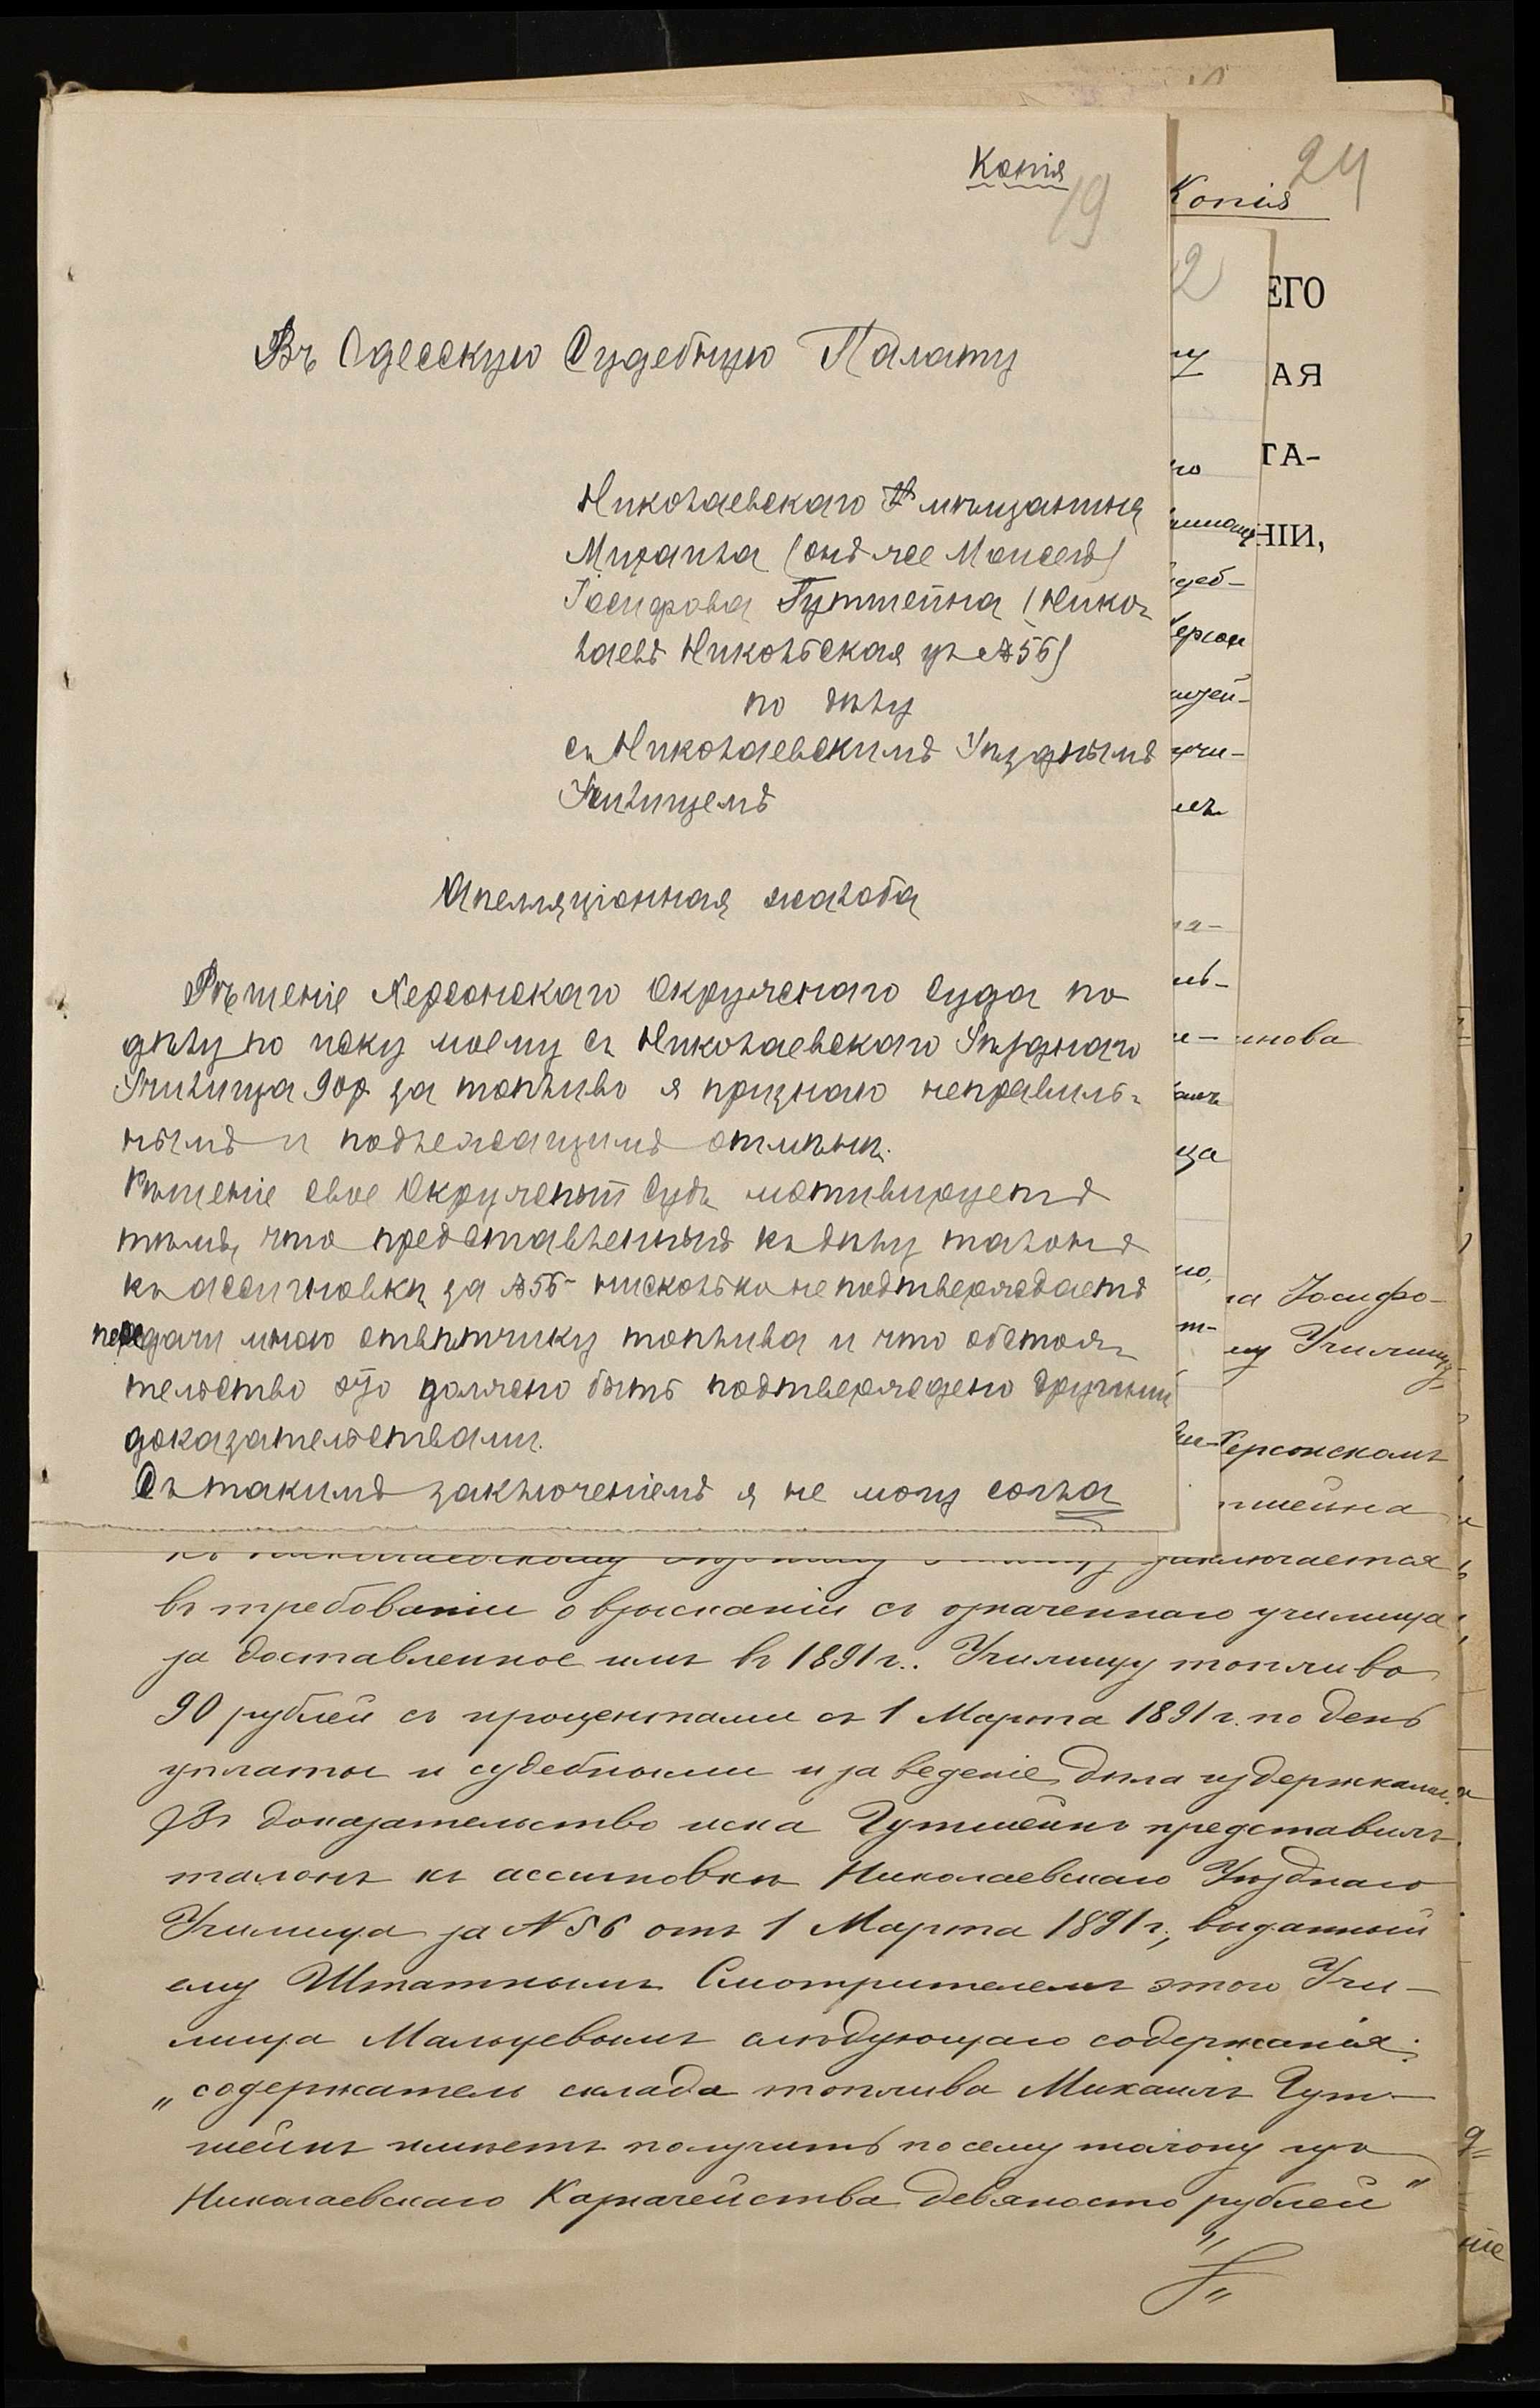 Копія
19
Въ Одесскую Судебную Палату
Николаевскаго мѣщанина
Михаила (онъ же Моисей)
Іосифова Гутштейна (Нико-
лаевъ Никольская ул №56)
по дѣлу
съ Николаевскимъ Уѣзднымъ
Училищемъ
Апелляціонная жалоба
Рѣшеніе Херсонскаго Окружнаго Суда по
дѣлу по иску моему съ Николаевскаго Уѣзднаго
Училища 90р за топливо я признаю неправиль-
нымъ и подлежащимъ отмѣнѣ.
Рѣшеніе свое Окружный Судъ мотивируетъ
тѣмъ, что представленный къ дѣлу талонъ
къ ассигновкѣ за №56- нисколько не подтверждаетъ
передачи мною отвѣтчику топлива и что обстоя-
тельство это должно быть подтверждено другими
доказательствами.
Съ такимъ заключеніемъ я не могу согла
24
Копія
2
ЕГО
АЯ
ТА-
НІИ,
у
го
деб-
ерсон
щей-
учи-
на-
ль-
и-
нова
ща
ла Іосифо-
му Училищу
Херсонскомъ
тшейна
заключается
въ требованіи о взысканіи съ означеннаго училища
за доставленное имъ въ 1891 г. Училищу топливо
90 рублей съ процентами съ 1 Марта 1891 г. по день
уплаты и судебными и за веденіе дѣла издержками.
Въ доказательство иска Гутшейнъ представилъ
талонъ къ ассигновкѣ Николаевскаго Уѣзднаго
Училища за №56 отъ 1 Марта 1891 г., выданный
ему Штатнымъ Смотрителемъ этого Учи-
лища Мальцевымъ слѣдующаго содержанія:
„содержатель склада топлива Михаилъ Гут-
шейнъ имѣетъ получить по сему талону изъ
Николаевскаго Казначейства девяносто рублей"